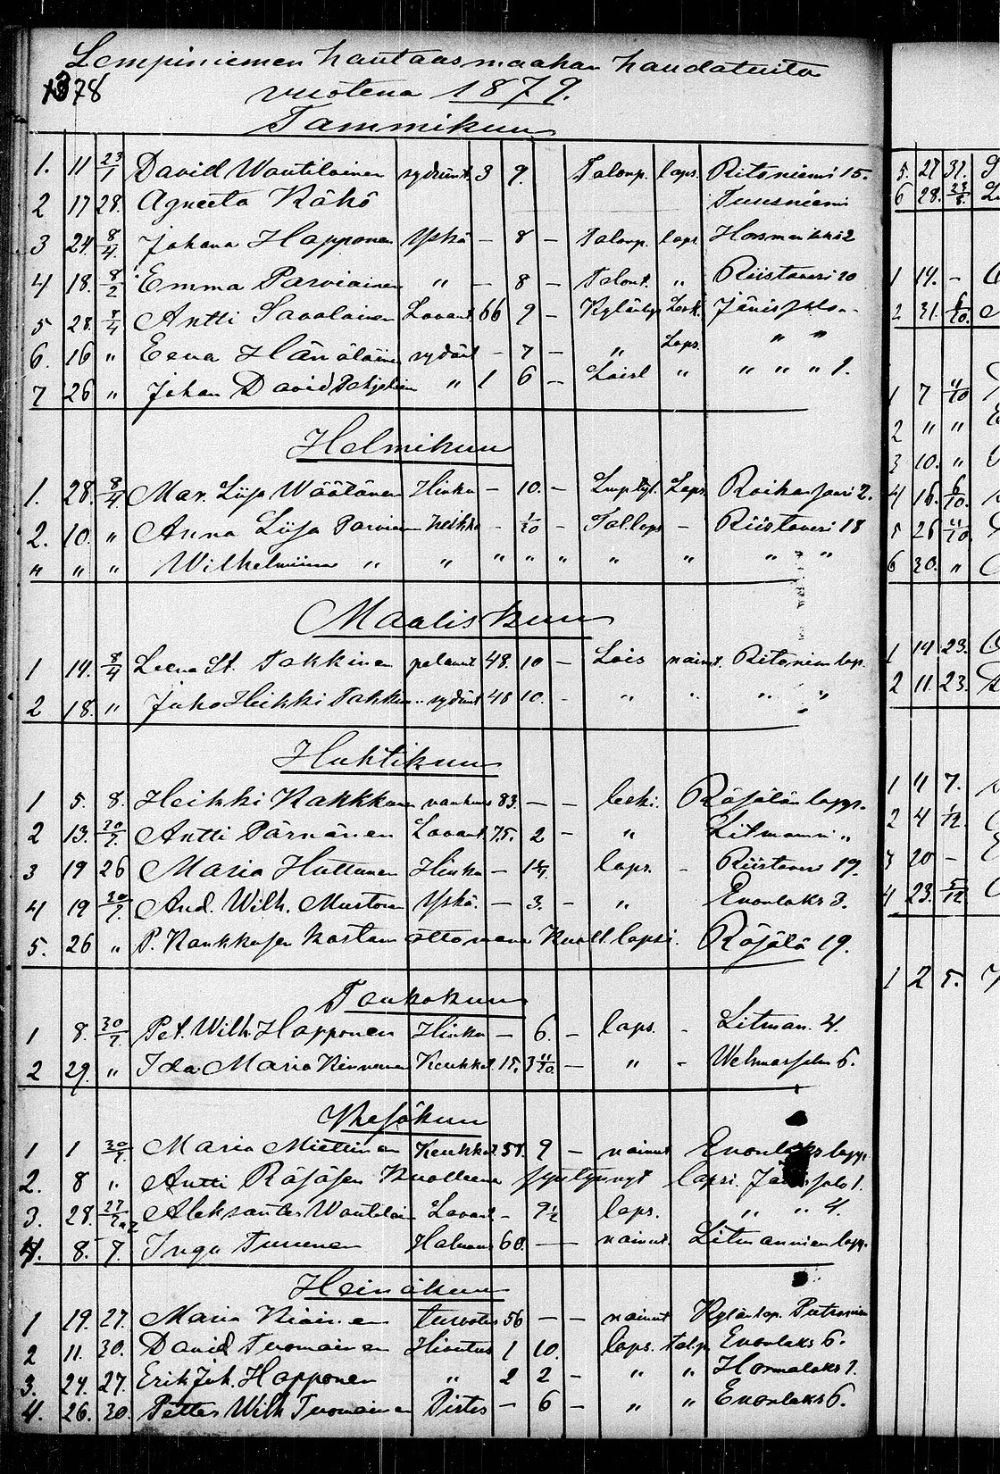 Lempiniemen hautausmaahan haudatuita
1378 vuotena 1879.
Tammikuu
1. 11 23/1 David Wautilainen sydänt. 3 9. Talonp. laps. Ritoniemi 15.
2 17 28. Agneeta Kähö Tuusniemi
3 24. 8/4. Johana Happonen Yskä – 8 – Talonp. laps. Horsmanlaks 2
4 18. 8/2 Emma Parviainen " – 8 – Talont. " Riistaveri 10
5 28. 8/4 Antti Savolainen Lavant. 66 9 – Kylänlap Lesk. Jänissalo
6. 16 " Eeva Hänäläinen sydänt – 7 – " Laps. " "
7 26 " Johan David " 1 6 – Loisl " " " " 1.
Helmikuu
1. 28. 8/4. Mar. Liisa Wäätänen Hinku – 10. – Laps. 2.
2. 10. " Anna Liisa Parviain heikko – 1/30 – Tal laps – Riistaveri 18
" " " Wilhelmiina " " " " " " " " "
Maaliskuu
1 14. 8/4 Leena St. Takkinen palanut 48. 10 – Lois nainut. Ritoniem lap.
2 18. " Juho Heikki Takkin " sydänt 48 10. – " " " "
Huhtikuu
1 5. 8. Heikki Kakkkonen vanhuus 83. – – leski. Räsälän lapp.
2 13. 20/7. Antti Pärnänen Lavant. 75. 2 – " Litmaniemi "
3 19 26 Maria Huttunen Hinku – 1 1/4. laps. – Riistaveri 19.
4 19 30/7. And. Wilh. Mustonen Yskä. – 3. – " Enonlaks 3.
5. 26 " P. Kaukkosen kastam ottomana kuoll. lapsi. Räsälä 19.
Toukokuu
1 8. 30/7 Pet. Wilh. Happonen Hinku – 6. – laps. – Litman. 4.
2 29. " Ida Maria Kinnunen Keuhkot. 15. 3 11/30 – " – Wehmassalm 6.
Kesäkuu
1 1 30/7. Maria Miettinen Keuhkot. 58. 9 – nainut Enonlaks lapp.
2. 8 " Antti Räsäsen Kuolleena syntynyt lapsi. Jänissalo 1.
3. 28. Aleksanter Wautilain Lavant – 9 1/2 laps. " " 4.
4. 8. 9. Inga Tuunen Halvaus 60. – – nainut Litmaniemen lapp.
Heinäkuu
1 19. 27. Maria Kiainen turvotus 56 – – nainut Kylän lap. Putroniem
2 11. 30. David Tuomainen Hivutus 1 10. laps. talp. Enonlaks 6.
3. 24. 27. Erik Joh. Happonen " 2 2 – " " Hormalaks 1.
4. 26. 30. Petter Wilh Tuomainen Pistos – 6 – " " Enonlaks 6.
5. 27 31.
6 28. 23/8.
1 14. –
2 31. 6/10.
1 7 11/10
2 " "
3 10. "
4 16. 6/10.
5 26 11/10
6 30. "
1 14 23.
2 11. 23.
1 " 7.
2 4 1/12.
3 20 –
4 23. 5/12
1 2 5.